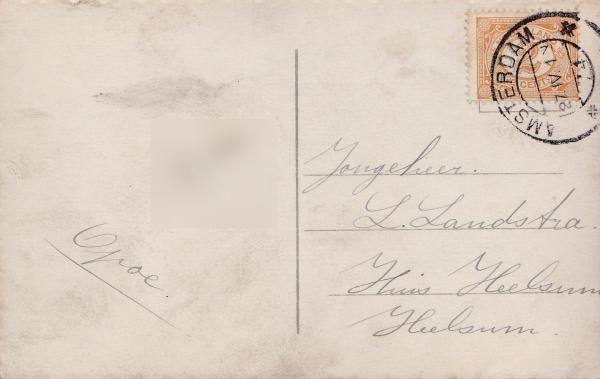 Opoe
AMSTERDAM
Jongeheer.
L. Landstra.
Huis Heelsum
Heelsum.